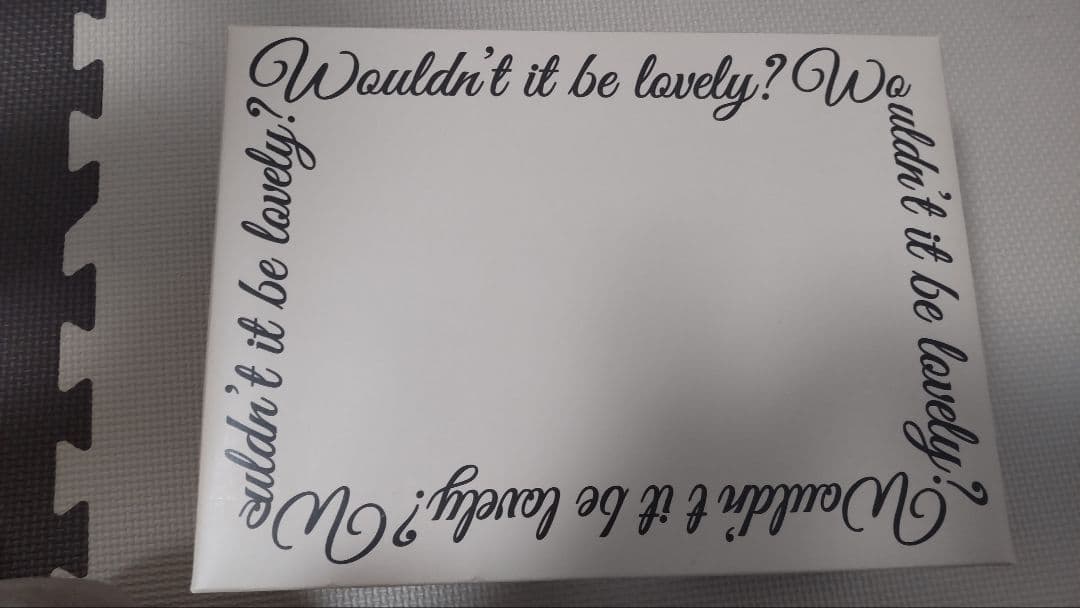 Wouldn't it be lovely? Wo
uldn't it be lovely?
Wouldn't it be lovely? Wo
uldn't it be lovely?